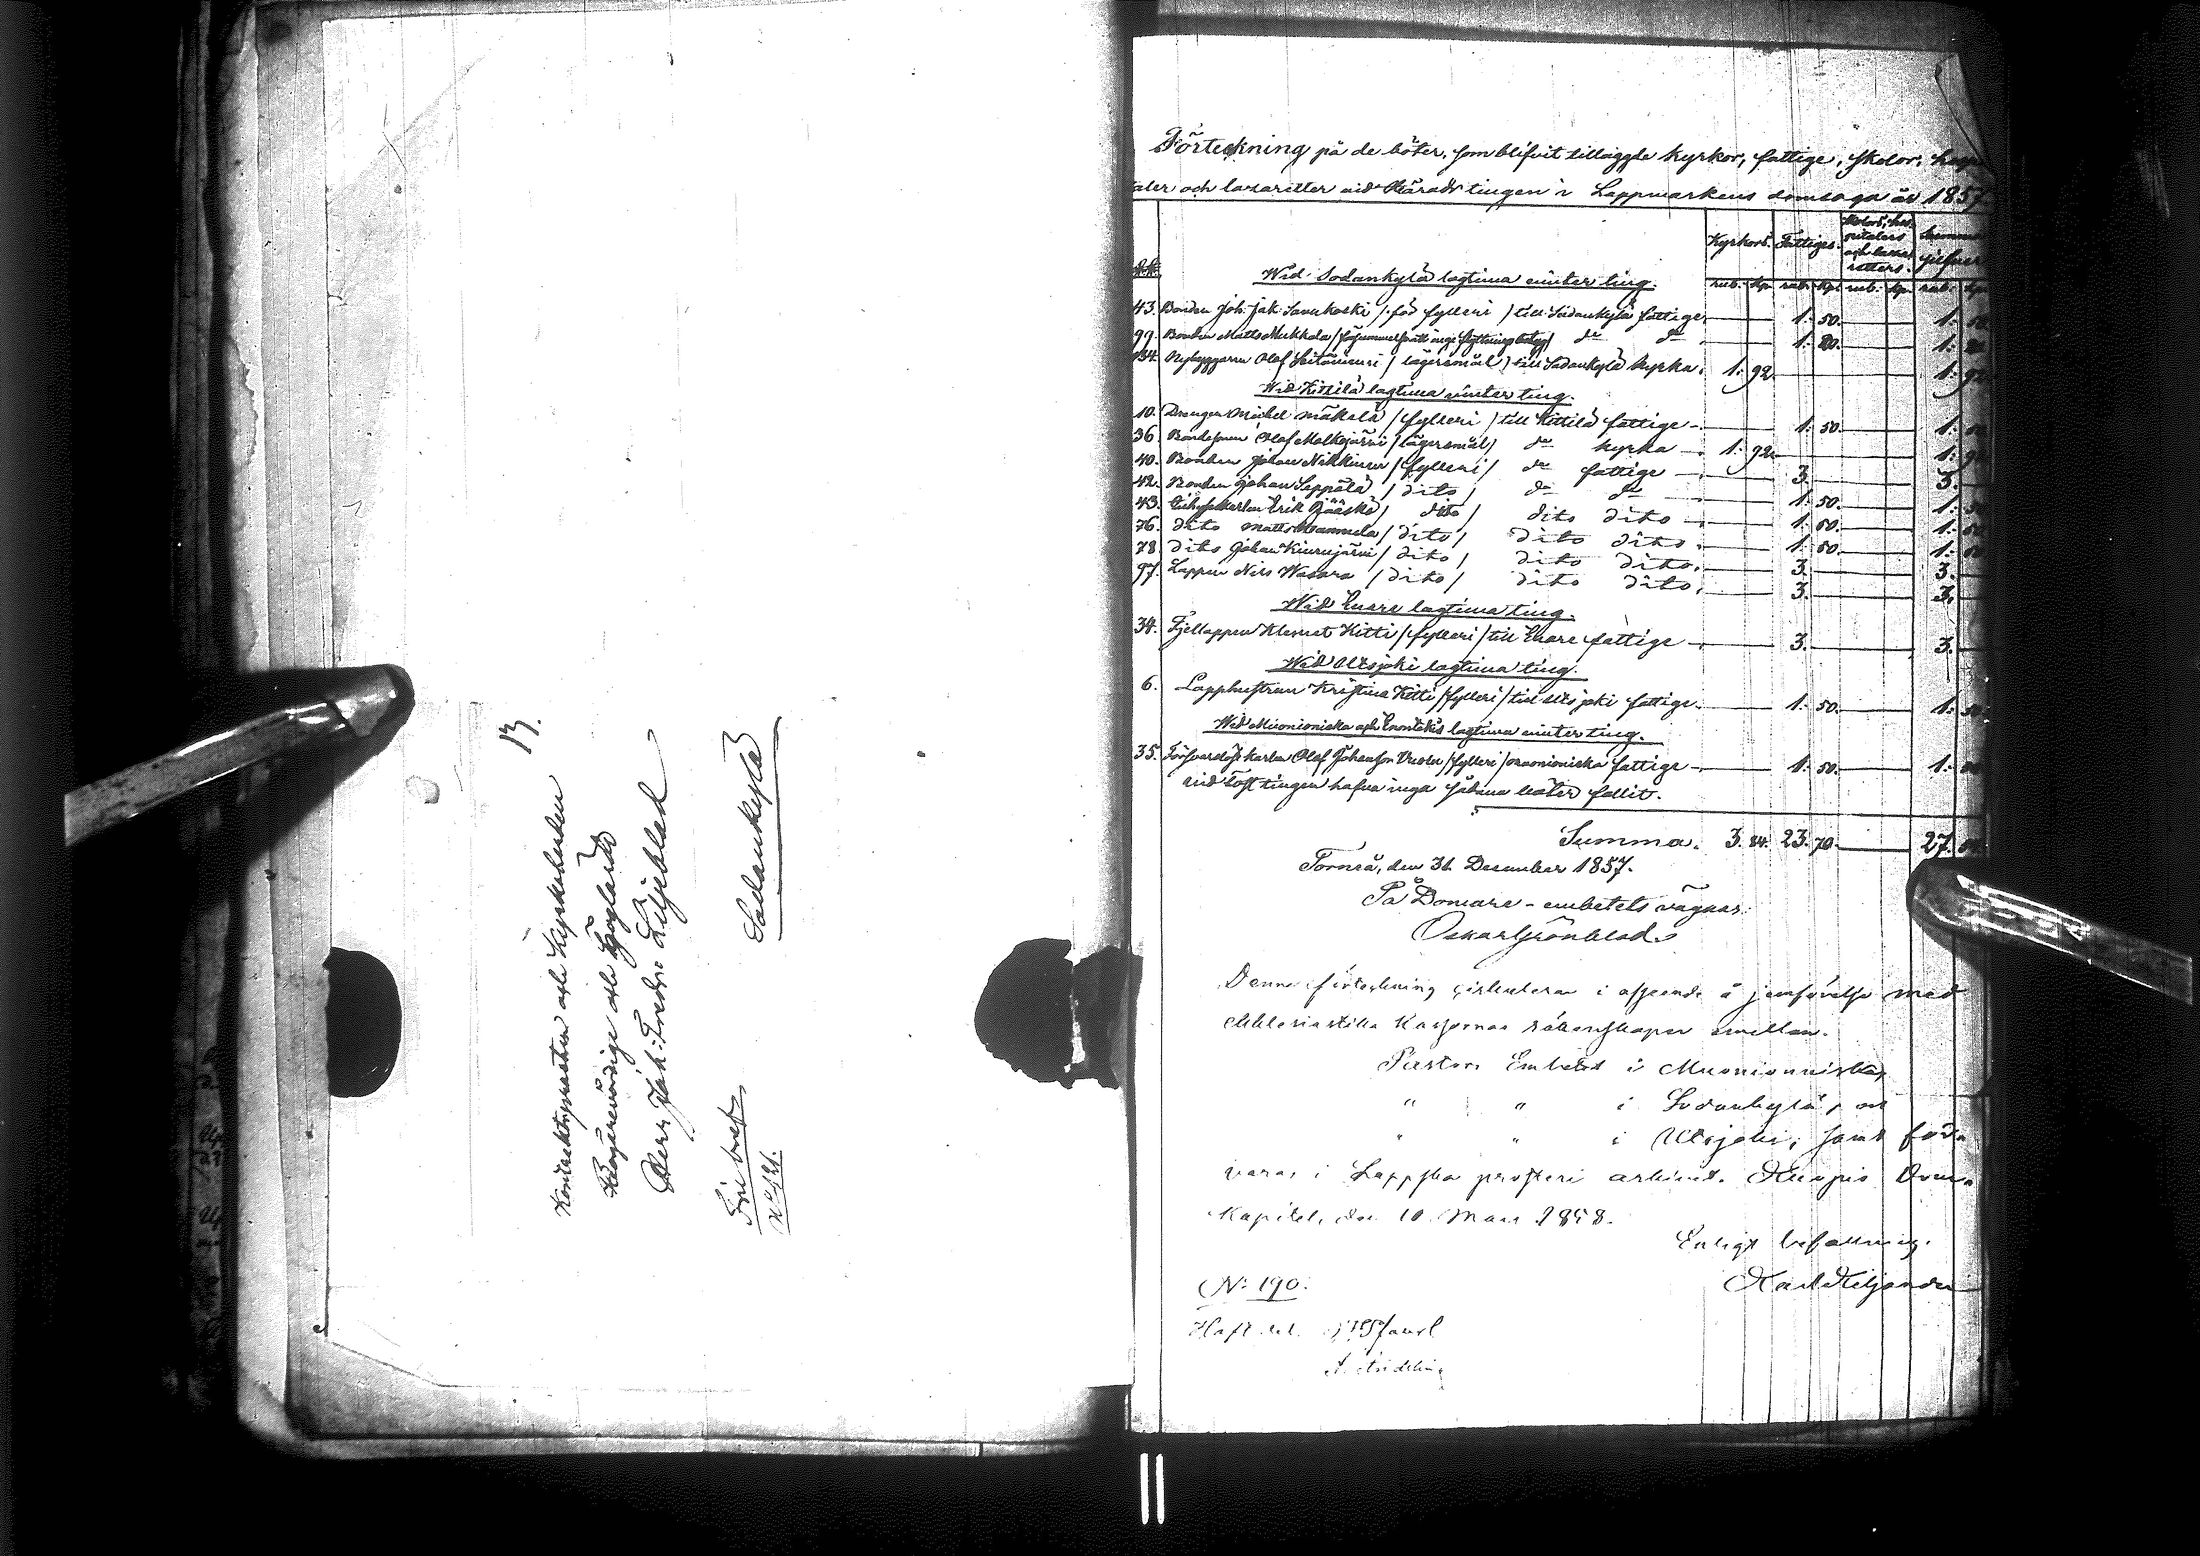 Kontraktsprosten och Kyrkoherden
Högärevördige och Höglärde
Herr Joh: Fredr: Liljeblad
Sodankylä
Fribref
Förteckning på de böter, som blifvit tillaggde kyrkor, fattige, skolor, hospi
taler och lazaretter vid Häradstingen i Lappmarkens domsaga år 1857
Kyrkors. Fattiges. Skolors, hos-
pitalers
och laza-
retters. Summa
Wid Sodankylä lagtima vinter ting. rub. kp. rub. kp. rub. kp. rub. kp.
43. Bonden Joh: Jak: Savukoski /för fylleri / till Sodankylä fattige. 1: 50. 1: 50
99. Bonden Matts Mukkala / do do 1: 20. 1: 20
134. Nybyggaren Olof / lägersmål / till Sodankylä kyrka. 1: 92. 1: 92
Wid Kittilä lagtima vinter ting.
10. Drengen Michel Mäkelä / fylleri / till Kittilä fattige 1: 50. 1: 50
36. Bondesonen Olof Molkojärvi / lägersmål / do kyrka 1: 92. 1: 92
40. Bonden Johan Nikkinen / fylleri / do fattige 3. 3.
42. Bonden Johan Seppälä / dito / do do 1: 50. 1: 50
43. Erik Pääskö / dito / dito dito 1: 50. 1: 50
76. dito Matts / dito / dito dito. 1: 50. 1: 50
78. dito Johan Kinnujärvi / dito / dito dito. 3. 3.
97. Lappen Nils Wasara / dito / dito dito. 3. 3.
Wid Enare lagtima ting.
34. Fjellappen Klemet Kitti / fylleri / till Enare fattige 3. 3.
Wid Utsjoki lagtima ting.
6. Lapphustrun Kristina Kitti / fylleri / till Utsjoki fattige. 1: 50. 1: 50
Wid Muonioniska och Enontekis lagtima vinter ting.
35. Försvarslöse karlen Olof Johansson / fylleri / Muonioniska fattige 1: 50. 1: 50
vid höst tingen hafva inga sådana böter fallit.
Summa. 3. 84. 23. 70. 27.
Torneå, den 31 December 1857.
På Domare-embetets vägnar:
Oskar Grönblad.
Denna förteckning cirkulerar i afseende å jemförelse med
ekklesiastika Kassornas räkenskaper emellan.
Pastors Embetet i Muonionniska,
" " i Sodankylä, och
" " i Utsjoki, samt förva-
varas i Lappska prosteri arkivet. Kuopio Dom-
Kapitel, den 10 Mars 1858.
Enligt befallning.
Karl Kiljander
No: 190.